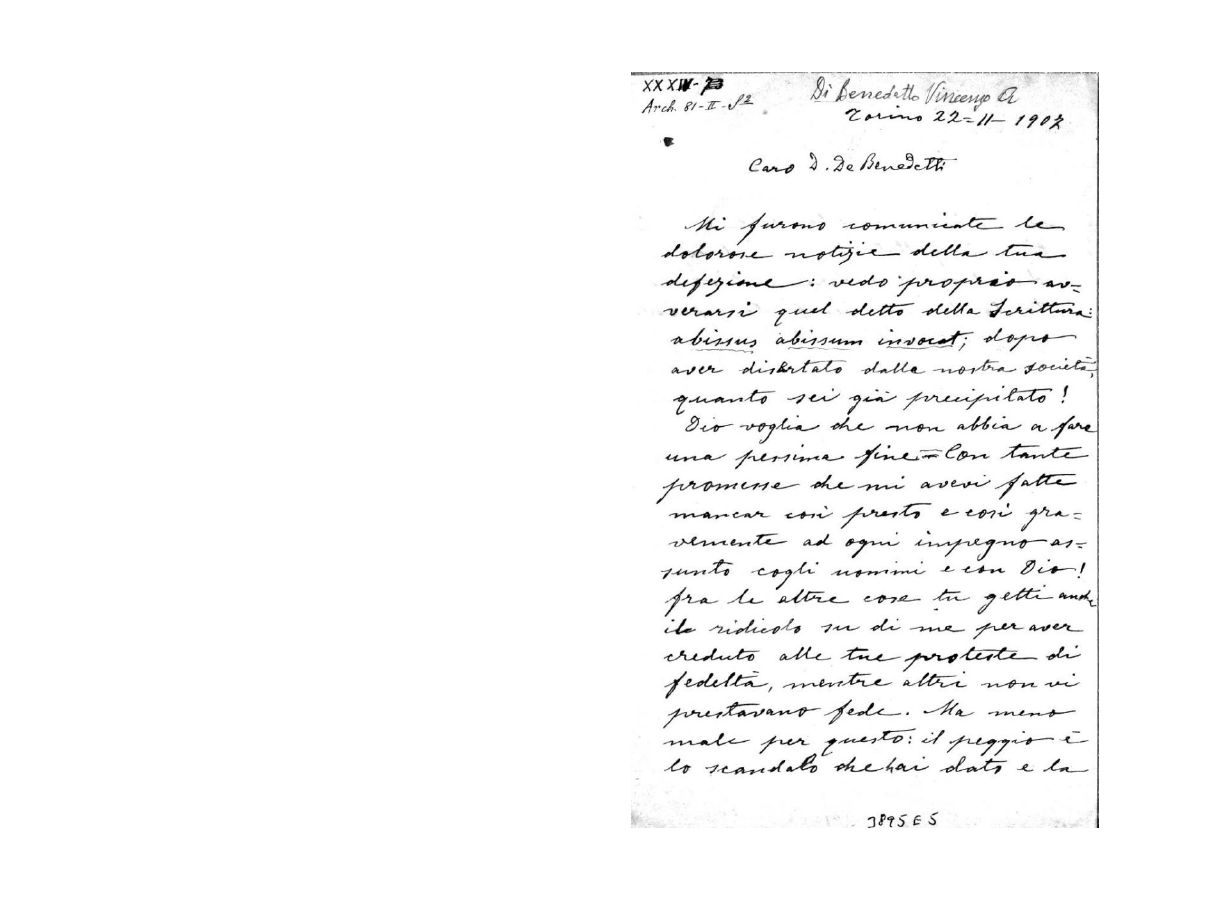 XXXIV-
Arch. 81-II-S2
Di Benedetto Vincenzo A
Torino 22=11-1907
Caro D. De Benedetti
Mi furono comunicate le
dolorose notizie della tua
defezione: vedo proprio av=
verarsi quel detto della Scrittura:
abissus abissum invocat; dopo
aver disertato dalla nostra società,
quanto sei già precipitato!
Dio voglia che non abbia a fare
una pessima fine = Con tante
promesse che mi avevi fatte
mancar così presto e così gra=
vemente ad ogni impegno as=
sunto cogli uomini e con Dio!
fra le altre cose tu getti anche
il ridicolo su di me per aver
creduto alle tue proteste di
fedeltà, mentre altri non vi
prestavano fede. Ma meno
male per questo: il peggio è
lo scandalo che hai dato e la
3895 E 5